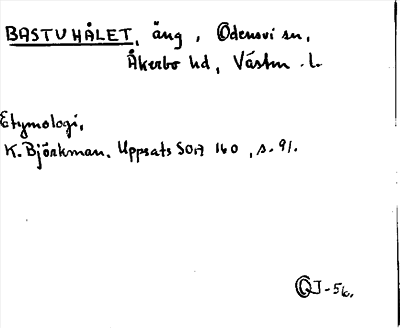 BASTUHÅLET, äng, Odensvi sn,
Åkerbo hd, Västm. l.
Etymologi,
K. Björkman. Uppsats SOA 160, s. 91.
OJ-56.